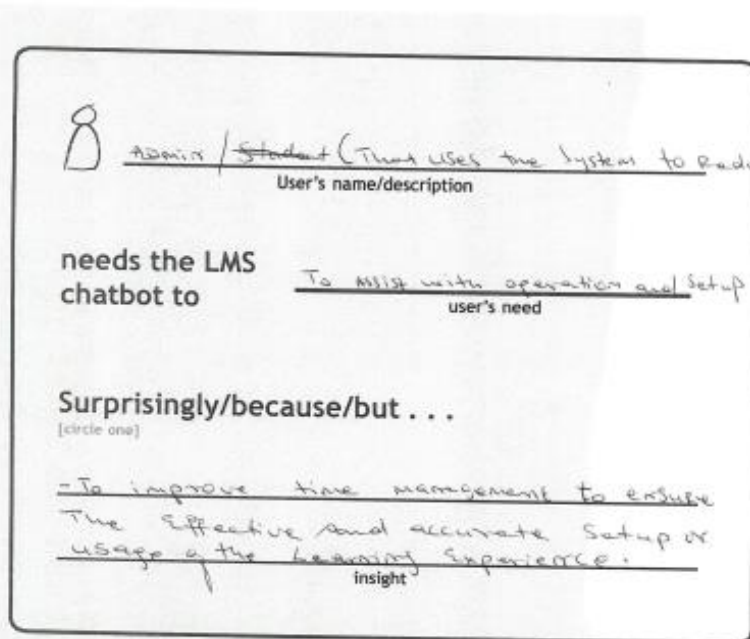 Admin / Student (That uses the System to
User's name/description
needs the LMS
chatbot to
To assist with operation and Setup
user's need
Surprisingly/because/but . . .
[circle one]
- To improve time management to ensure
The Effective and accurate Setup or
usage of the Learning Experience.
insight